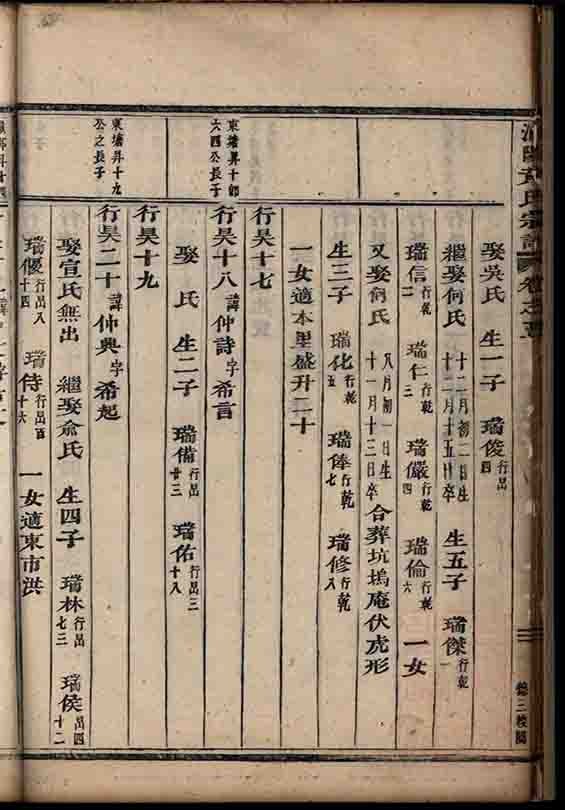 氏宗譜 卷之
娶吳氏 生一子 瑞俊行出四
繼娶何氏 十二月初二日生 十二月十五日卒 生五子 瑞傑行乾一
瑞信行乾二 瑞仁行乾三 瑞儼行乾四 瑞倫行乾六 一女
又娶何氏 八月初一日生 十一月十三日卒 合葬坑塢庵伏虎形
生三子 瑞化行乾五 瑞俸行乾七 瑞修行乾八
一女適本里盛升二十
行昊十七
東塘昇十郎六四公長子
行昊十八 諱仲詩 字希言
娶 氏 生二子 瑞備行出廿三 瑞佑行出三十八
行昊十九
東塘昇十九公之長子
行昊二十 諱仲興 字希起
娶宣氏無出 繼娶俞氏 生四子 瑞林行出七三 瑞侯出四十二
瑞優行出八十四 瑞侍行出百十六 一女適東市洪